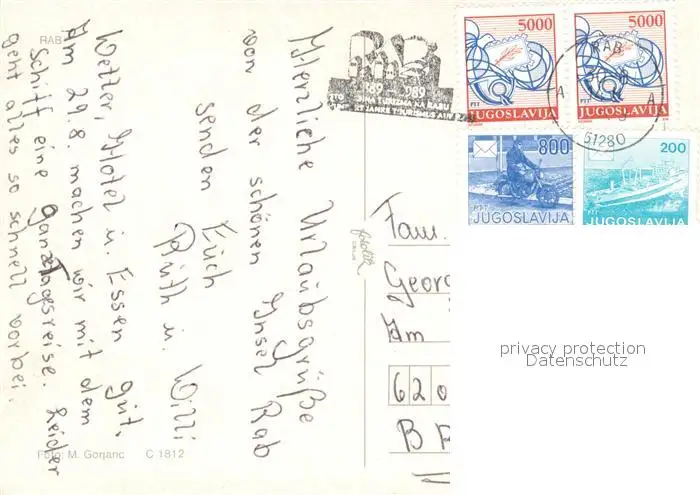 RAB
Herzliche Urlaubsgrüße
von der schönen Insel Rab
senden Euch
Ruth u. Willi
Wetter, Hotel u. Essen gut.
Am 29.8. machen wir mit dem
Schiff eine Ganztagesreise. Leider
geht alles so schnell vorbei.
Foto: M. Gorjanc C 1812
fotolik
1889 1989
TURIZMA NA RABU
JAHRE TOURISMUS AUF
5000
PTT
JUGOSLAVIJA
5000
PTT
JUGOSLAVIJA
RAB
A A
51280
800
PTT
JUGOSLAVIJA
200
PTT
JUGOSLAVIJA
Fam.
Georg
Am
620
privacy protection
Datenschutz